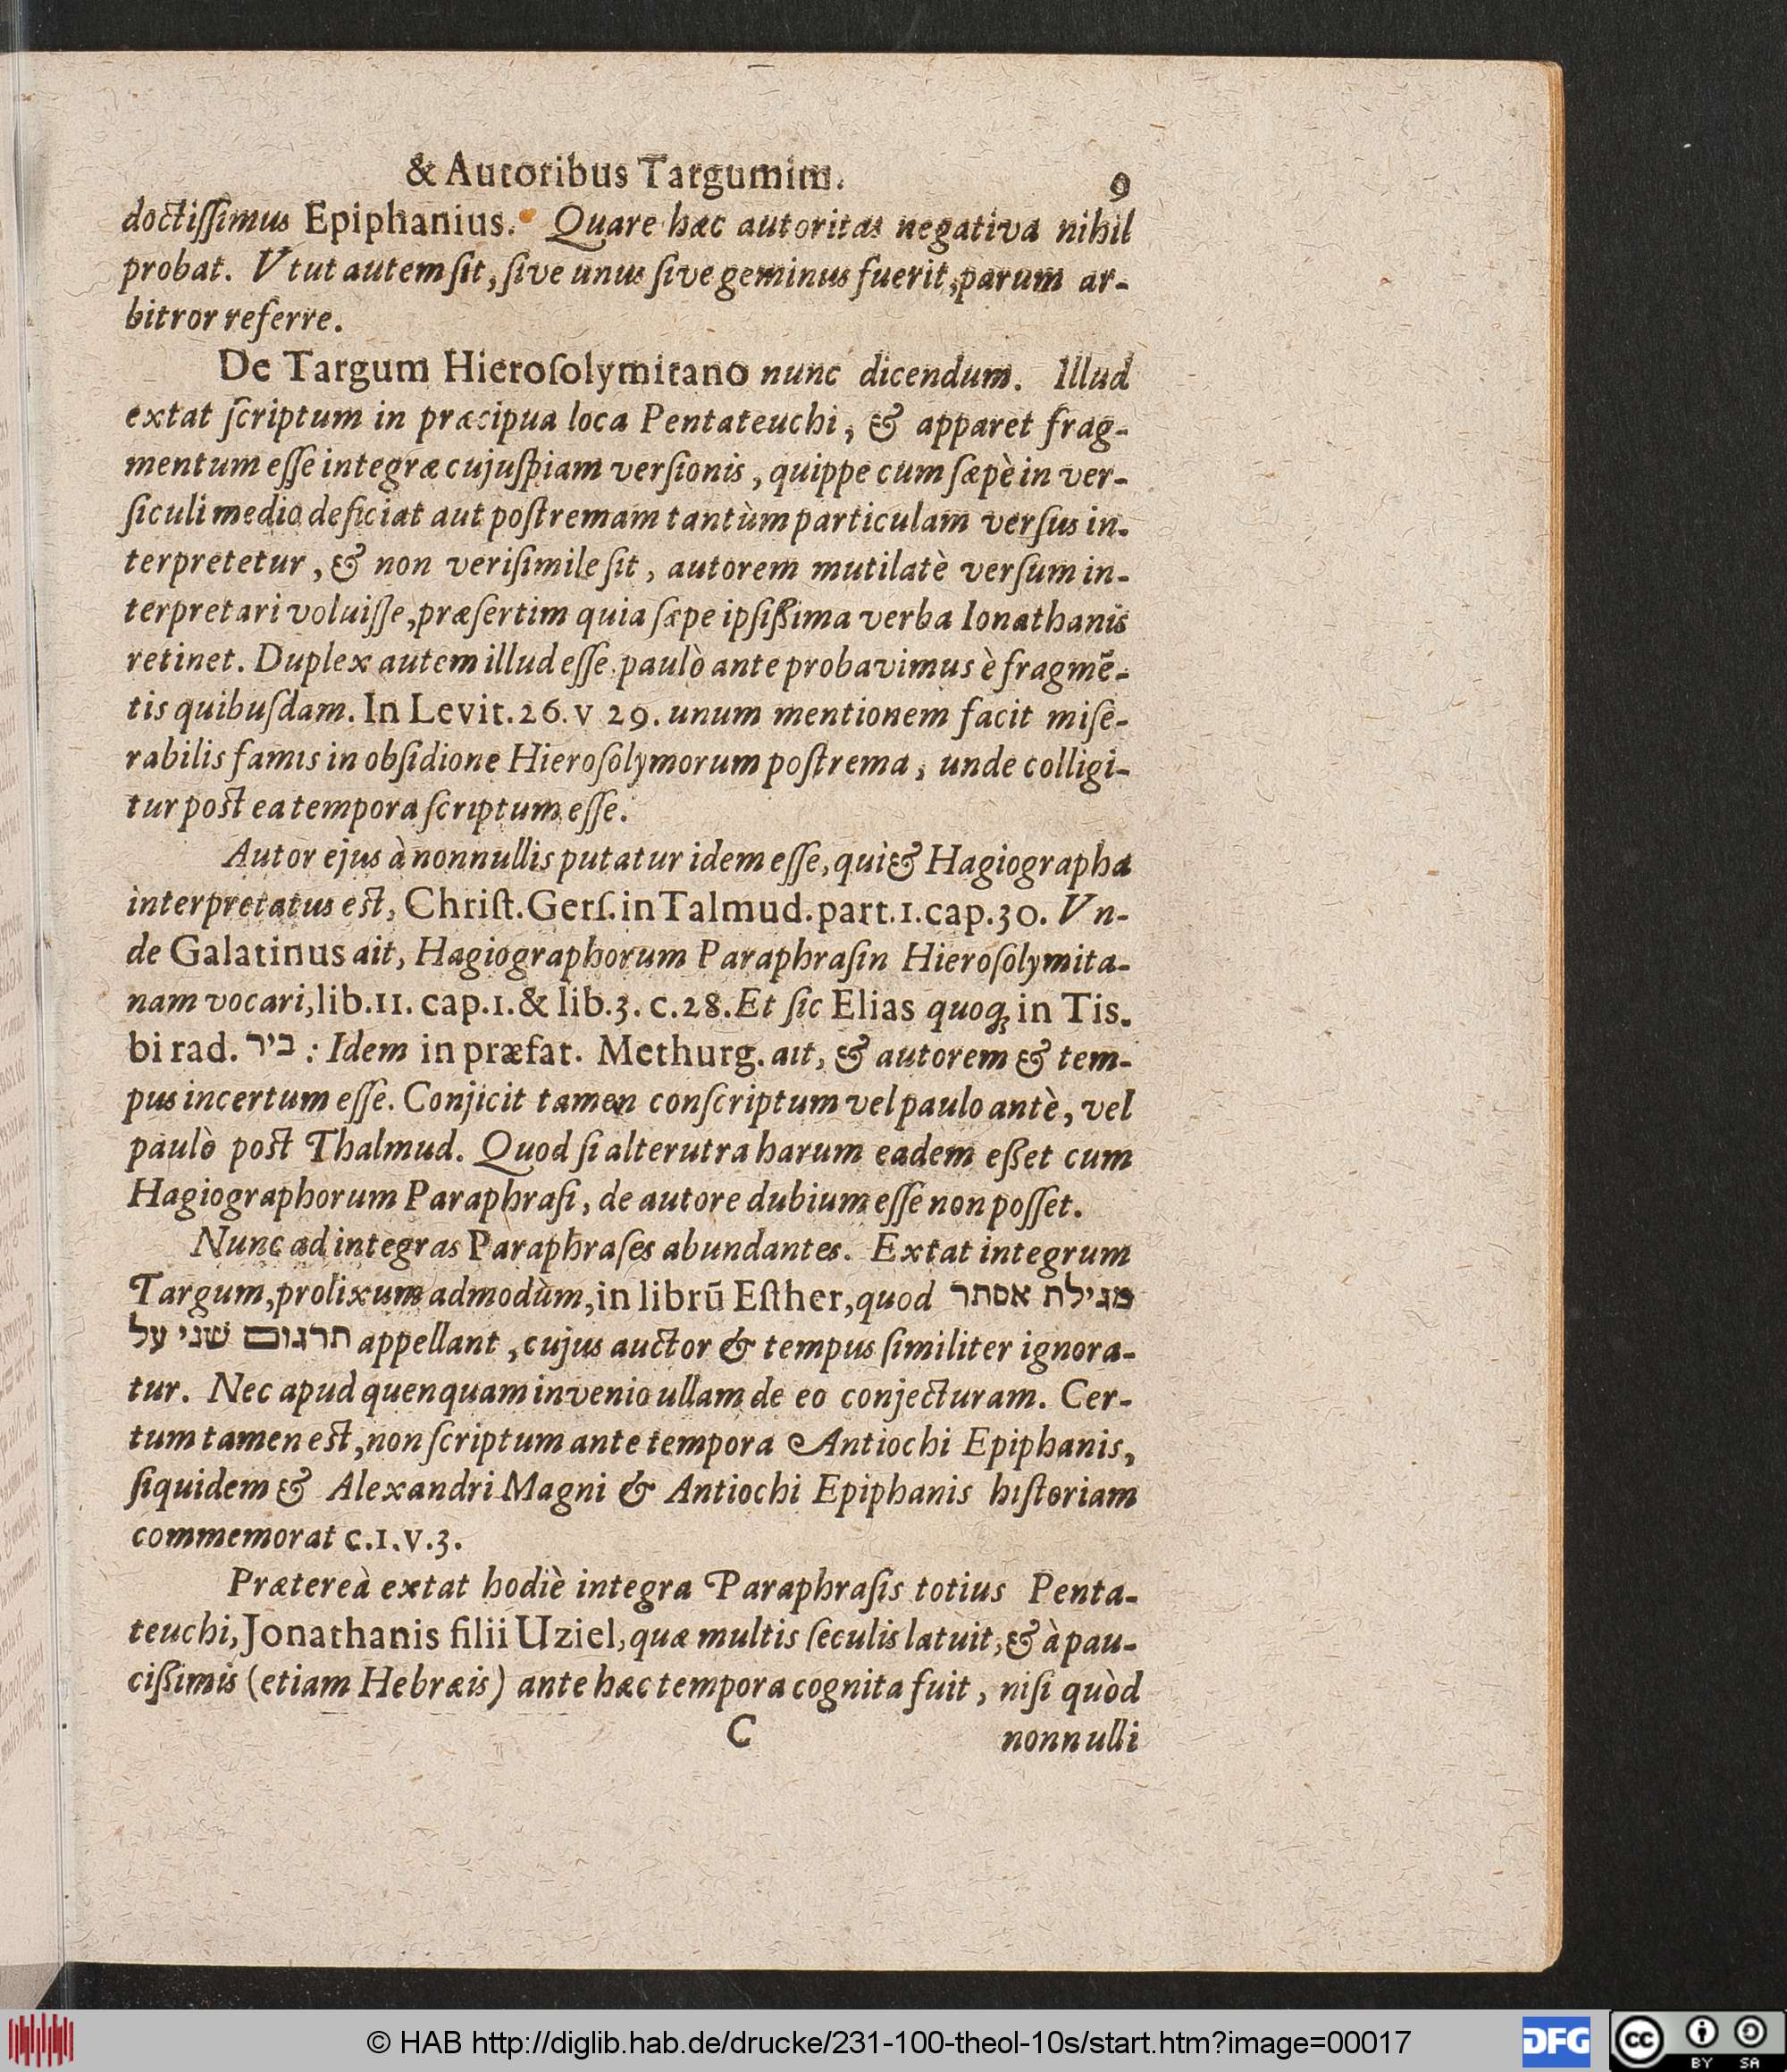 & Autoribus Targumim. 9
doctiſſimus Epiphanius. Quare hæc autoritas negativa nihil
probat. Vtut autem ſit, ſive unus ſive geminus fuerit, parum ar-
bitror referre.
De Targum Hieroſolymitano nunc dicendum. Illud
extat ſcriptum in præcipua loca Pentateuchi, & apparet frag-
mentum eſſe integræ cujuſpiam verſionis, quippe cum ſæpè in ver-
ſiculi medio deficiat aut poſtremam tantùm particulam verſus in-
terpretetur, & non veriſimile ſit, autorem mutilatè verſum in-
terpretari voluiſſe, præſertim quia ſæpe ipſißima verba Ionathanis
retinet. Duplex autem illud eſſe paulò ante probavimus è fragmē-
tis quibuſdam. In Levit. 26. v 29. unum mentionem facit miſe-
rabilis famis in obſidione Hieroſolymorum poſtrema, unde colligi-
tur poſt ea tempora ſcriptum eſſe.
Autor ejus à nonnullis putatur idem eſſe, qui & Hagiographa
interpretatus eſt, Chriſt. Gerſ. in Talmud. part. 1. cap. 30. Vn-
de Galatinus ait, Hagiographorum Paraphraſin Hieroſolymita-
nam vocari, lib. 11. cap. 1. & lib. 3. c. 28. Et ſic Elias quoq; in Tis-
bi rad. ביר : Idem in præfat. Methurg. ait, & autorem & tem-
pus incertum eſſe. Conjicit tamen conſcriptum vel paulo antè, vel
paulò poſt Thalmud. Quod ſi alterutra harum eadem eßet cum
Hagiographorum Paraphraſi, de autore dubium eſſe non poſſet.
Nunc ad integras Paraphraſes abundantes. Extat integrum
Targum, prolixum admodùm, in librū Eſther, quod מגילת אסתר
תרגום שני על appellant, cujus auctor & tempus ſimiliter ignora-
tur. Nec apud quenquam invenio ullam de eo conjecturam. Cer-
tum tamen eſt, non ſcriptum ante tempora Antiochi Epiphanis,
ſiquidem & Alexandri Magni & Antiochi Epiphanis hiſtoriam
commemorat c. 1. v. 3.
Prætereà extat hodiè integra Paraphraſis totius Penta-
teuchi, Jonathanis filii Uziel, quæ multis ſeculis latuit, & à pau-
cißimis (etiam Hebræis) ante hæc tempora cognita fuit, niſi quòd
C nonnulli
© HAB http://diglib.hab.de/drucke/231-100-theol-10s/start.htm?image=00017
DFG
cc BY SA